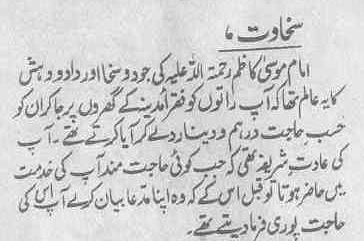 سخاوت ؎
امام موسیٰ کاظم رحمۃ اللہ علیہ کی جود و سخا اور داد و دہش
کا یہ عالم تھا کہ آپ راتوں کو فقراء مدینہ کے گھروں پر جا کر ان کو
حسب حاجت درہم و دینار دے کر آیا کرتے تھے۔ آپ
کی عادتِ شریفہ تھی کہ جب کوئی حاجت مند آپ کی خدمت
میں حاضر ہوتا تو قبل اس کے کہ وہ اپنا مدعا بیان کرے آپ اس کی
حاجت پوری فرما دیتے تھے۔